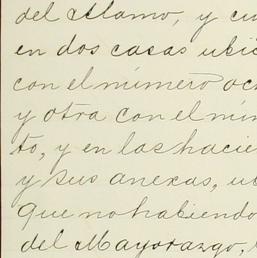 del Alamo, y cu
en dos casas ubic
con el número och
y otra con el núm
to, y en las hacie
y sus anexas, ub
que no habiendo
del Mayorazgo,